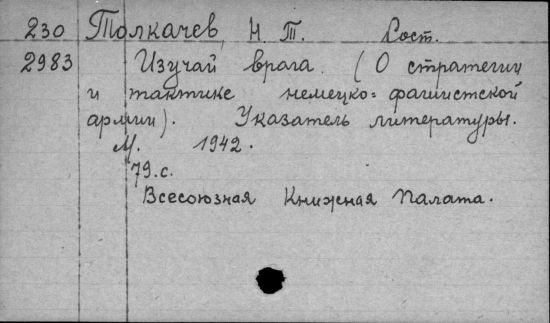 230 Толкачев, Н. Т. Сост.
2983 Изучай врага. (О стратегии
и тактике немецко=фашистской
армии). Указатель литературы.
М. 1942.
79.с.
Всесоюзная Книжная Палата.